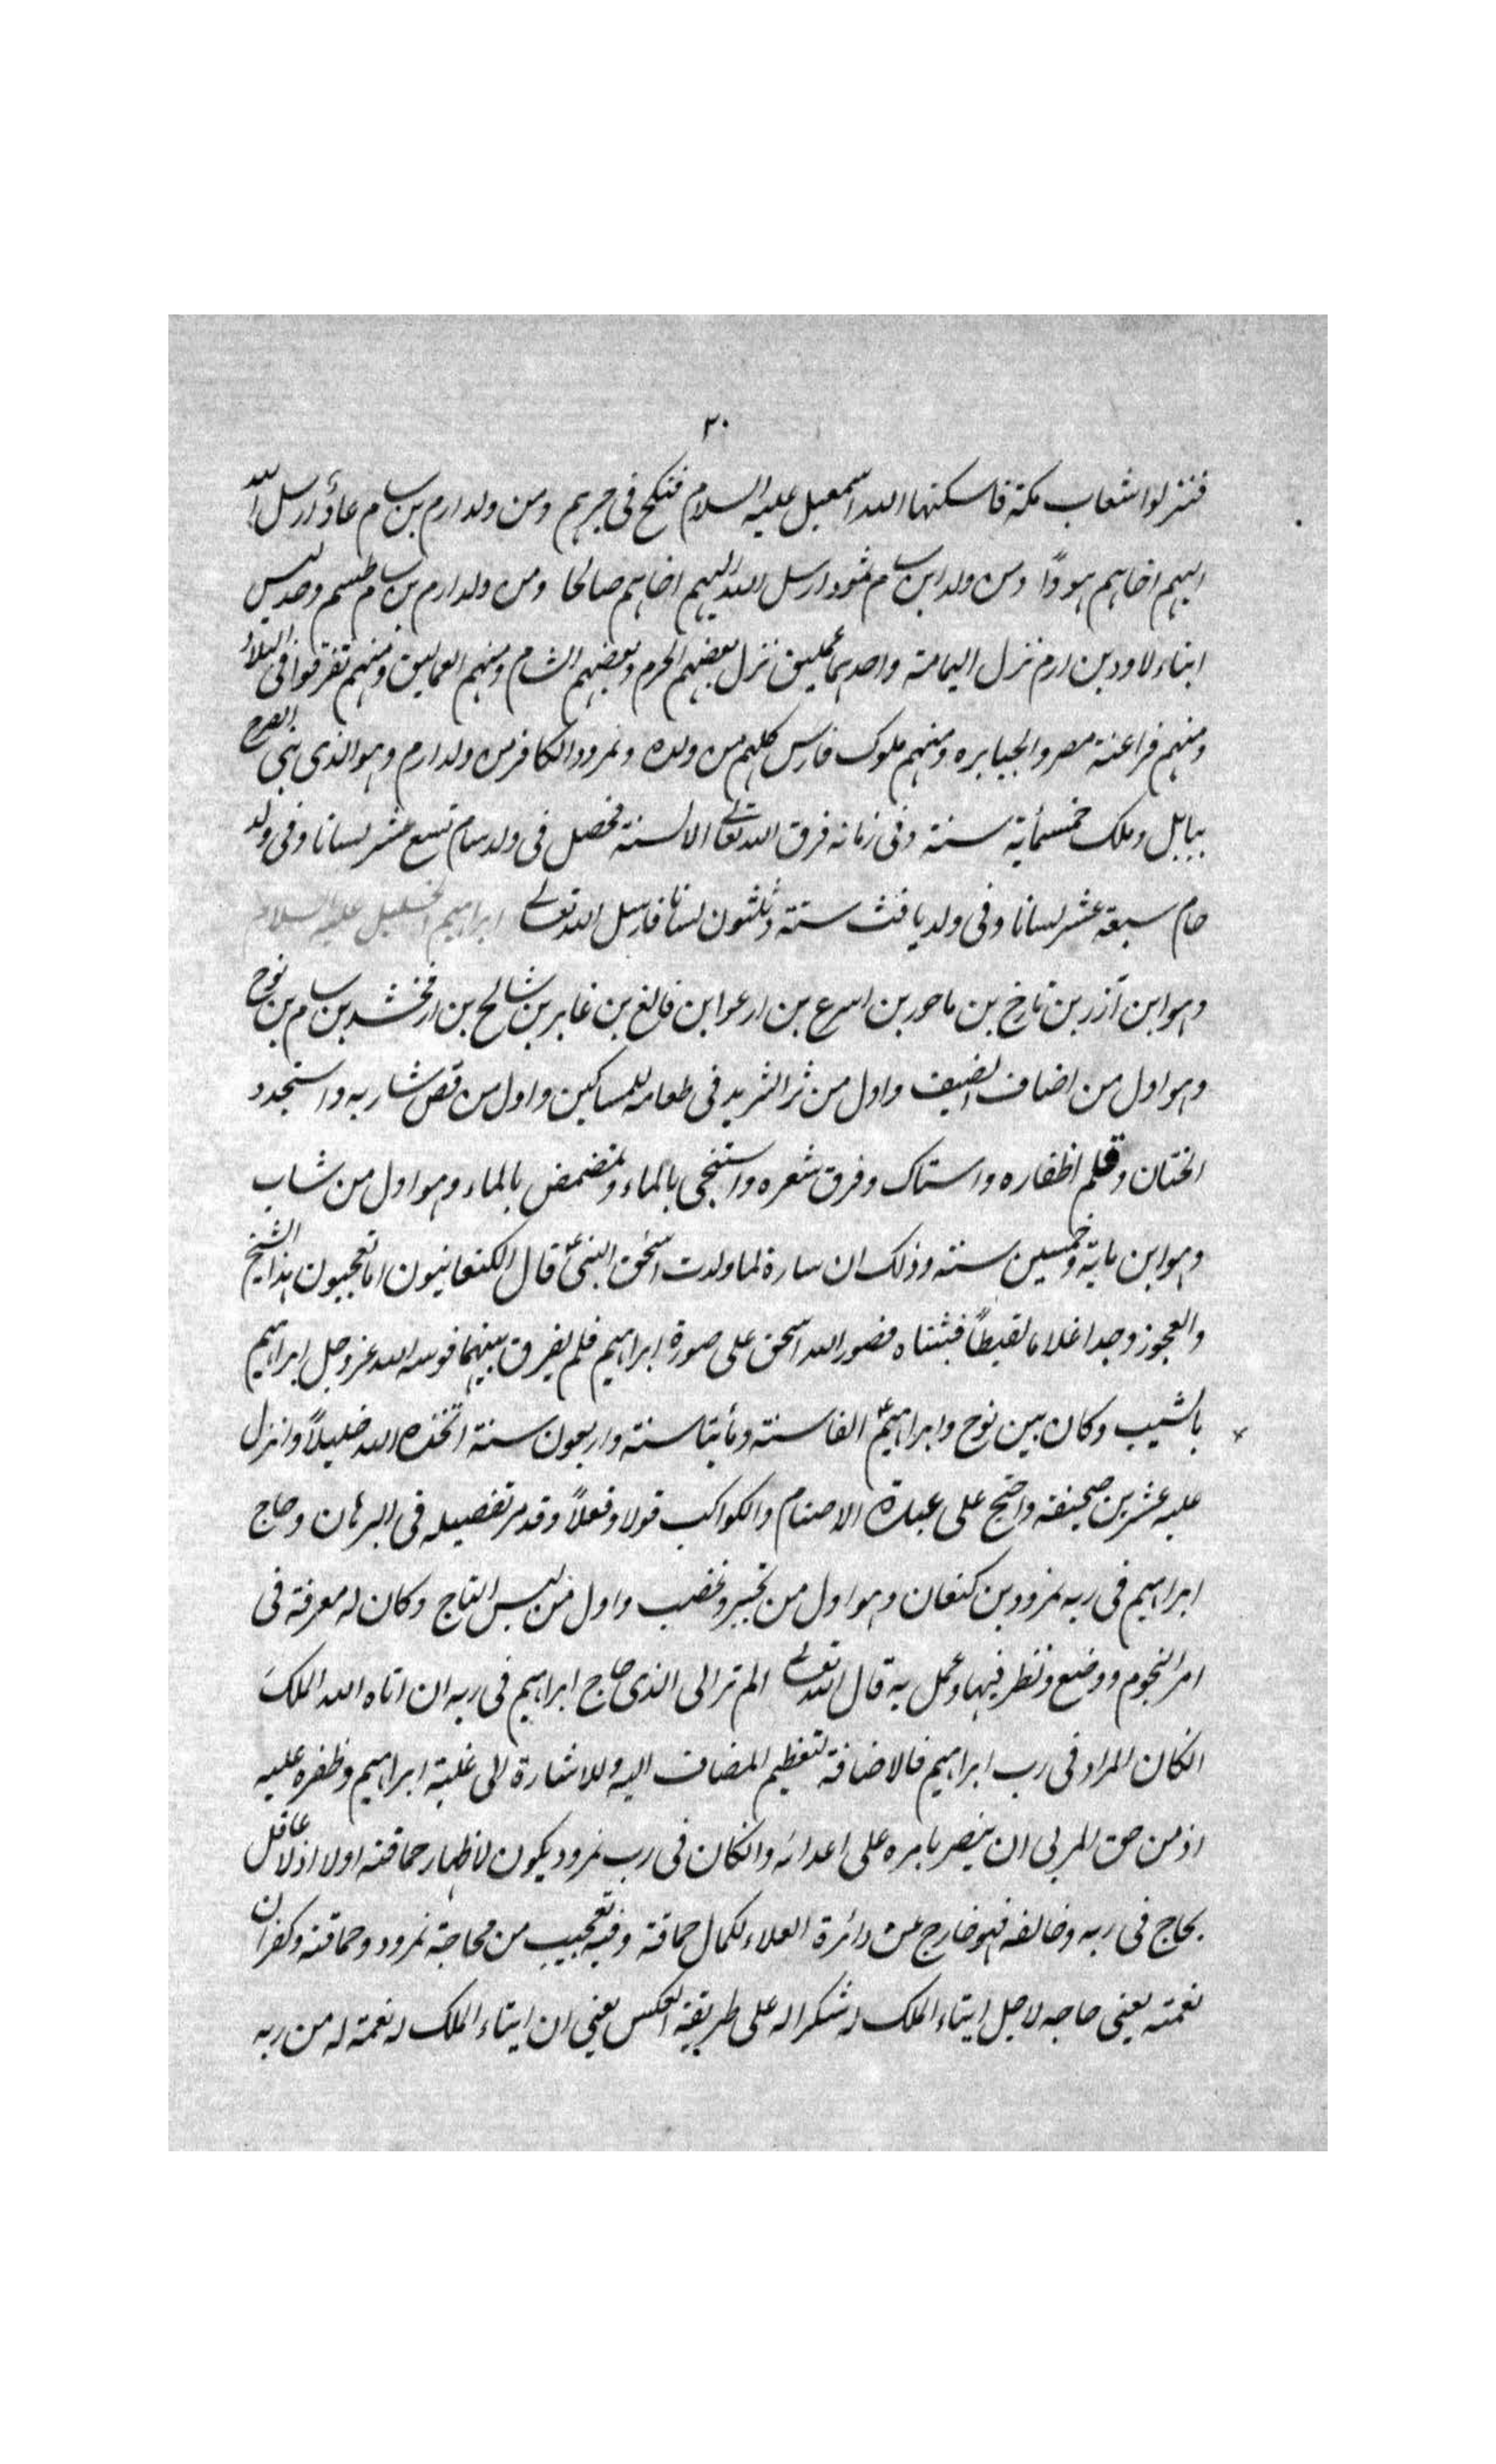 ٢٠
فنزلوا شعاب مكة فاسكنها الله اسمعيل عليه السلام فنكح فى جرهم ومن ولد ارم بن سام عادٌ ارسل الله
اليهم اخاهم هودًا ومن ولد ابن سام ثمود ارسل الله اليهم اخاهم صالحا ومن ولد ارم بن سام طسم وجديس
ابناء لاود بن ارم نزل اليمامة واحدهما عمليق نزل بعضهم الحرم وبعضهم الشام ومنهم العماليق ومنهم تفرقوا فى البلاد
ومنهم فراعنة مصر والجبابره ومنهم ملوك فارس كلهم من ولده ونمرود الكافر من ولد ارم وهو الذى بنى الصرح
ببابل وملك خمسمأية سنة وفى زمانه فرق الله تعالے الالسنة فحصل فى ولد سام تسع عشر لسانا وفى ولد
حام سبعة عشر لسانا وفى ولد يافث ستة وثلثون لسانا فارسل الله تعالے ابراهيم الخليل عليه السلام
وهو ابن آزر بن تارخ بن ماحور بن اسرع بن ارعوا بن فالغ بن غابر بن شالح بن ارفخشد بن سام بن نوح
وهو اول من اضاف الضيف واول من ثر الثريد فى طعامه للمساكين واول من قص شاربه واستجدد
الختان وقلم اظفاره واستاك وفرق شعره واستنجى بالماء وتمضمض بالماء وهو اول من شاب
وهو ابن ماية وخمسين سنة وذلك ان سارة لما ولدت اسحٰق النبىؑ قال الكنعانيون اما تعجبون هذا الشيخ
والعجوز وجدا غلاما لقيطاً فبثناه فصور الله اسحق على صورة ابراهيم فلم يفرق بينهما فوسمه الله عز وجل ابراهيم
بالشيب وكان بين نوح وابراهيمؑ الفا سنة ومأيتا سنة واربعون سنة اتخذه الله خليلاً وانزل
عليه عشرين صحيفة واحتج على عبدة الاصنام والكواكب قولا وفعلاً وقد مر تفصيله فى البرهان وحاج
ابراهيم فى ربه نمرود بن كنعان وهو اول من تجبر وغضب واول من لبس التاج وكان له معرفة فى
امر النجوم ووضع ونظر فيها وعمل به قال الله تعالے الم تر الى الذى حاج ابراهيم فى ربه ان اتاه الله الملك
انكان المراد فى رب ابراهيم فالاضافة لتعظيم المضاف اليه وللاشارة الى غلبة ابراهيم وظفره عليه
اذ من حق المربى ان ينصر بامره على اعدائه وانكان فى رب نمرود يكون لاظهار حماقته اولا اذ لا عاقل
يحاج فى ربه وخالفه فهو خارج عن دائرة العلاء لكمال حماقة وفيه تعجيب من محاجة نمرود وحماقته وكفران
نعمته يعنى حاجه لاجل ايتاء الملك له شكرا له على طريقة العكس يعنى ان ايتاء الملك له نعمة له من ربه